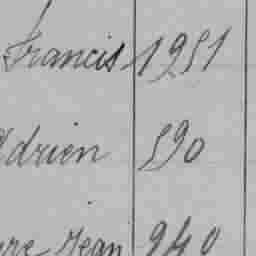 Francis 1951
Adrien 590
Jean 940